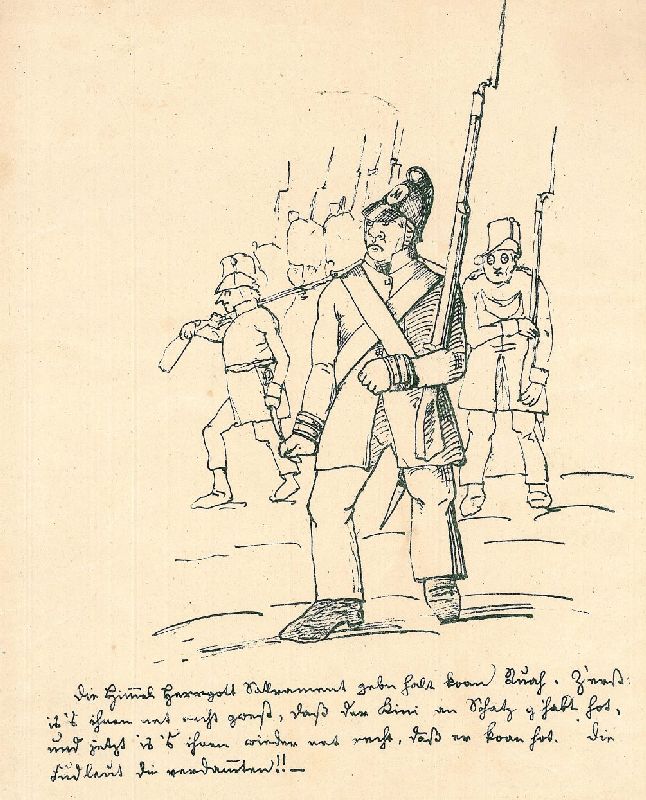 Die Him̅el Herrgott Sakrament gebn halt koan Ruah. Z'erst
is 's ihnen net recht gwest, daß der Kini an Schatz g'habt hot,
und jetzt is 's ihnen wieder net recht, daß er koan hot. Die
die verdam̅ten!! —